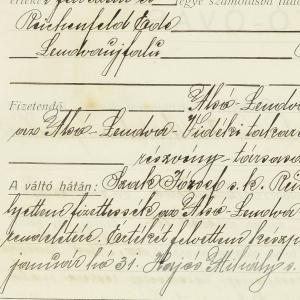 értékét számolásba tud
Reichenfeld Ede
Lendvaujfalu
Fizetendő Alsó-Lendv
az Alsó-Lendva-Vidéki takaré
részvény-társasá
A váltó hátán: Szak József s. k. Rei
fizettessék az Alsó-Lendva
rendeletére. Értékét felvettem készp
január hó 31. Hajós Mihály s.